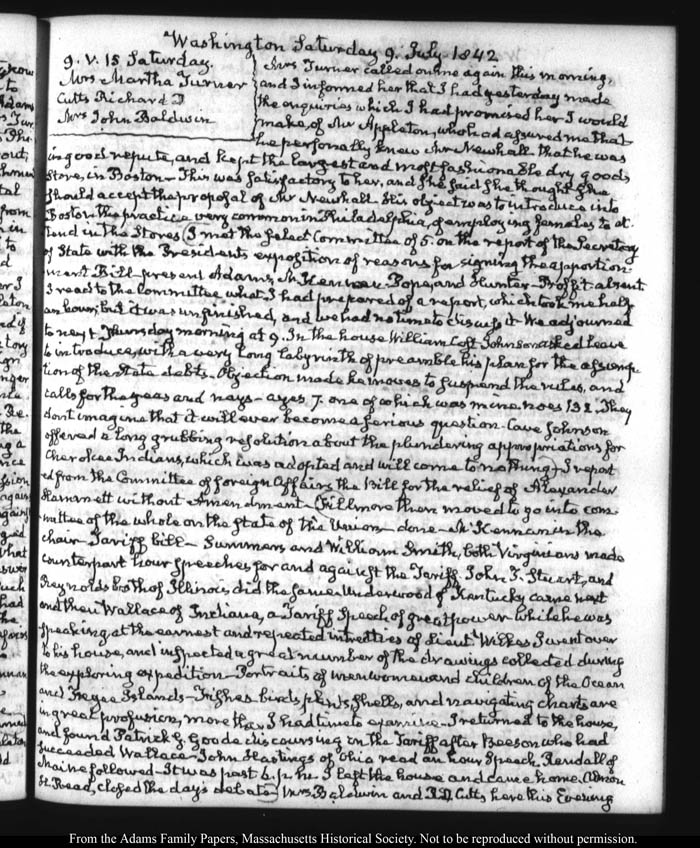 Washington Saturday 9. July 1842
9. V. 15 Saturday.
Mrs Martha Turner
Cutts Richard D
Mrs John Baldwin
Mrs Turner called on me again this morning,
and I informed her that I had yesterday made
the enquiries which I had promised her I would
make, of Mr Appleton, who had assured me that
he personally knew Mr Newhall that he was
in good repute, and kept the largest and most fashionable dry goods
store, in Boston— This was satisfactory to her, and she said she thought she
should accept the proposal of Mr Newhall. His object was to introduce into
Boston the practice very common in Philadelphia, of employing females to at-
tend in the Stores (I met the select Committee of 5. on the report of the Secretary
of State with the Presidents exposition of reasons for signing the apportion-
ment Bill— present Adams, McKennan Pope, and Hunter— Proffit absent
I read to the Committee what I had prepared of a report, which took me half
an hour; but it was unfinished, and we had no time to discuss it. We adjourned
to next Thursday morning at 9. In the house William Cost Johnson asked leave
to introduce, with a very long labyrinth of preamble his plan for the assump-
tion of the State debts— Objection made he moves to suspend the rules, and
calls for the yeas and nays— ayes 7. one of which was mine noes 132. They
dont imagine that it will ever become a serious question— Cave Johnson
offered a long grubbing resolution about the plundering appropriations for
Cherokee Indians, which was adopted and will come to nothing— I report-
ed from the Committee of foreign Affairs the Bill for the relief of Alexander
Hammett without Amendment— Fillmore then moved to go into com-
mittee of the whole on the state of the Union— done— McKennan in the
chair— Tariff bill— Summers and William Smith, both Virginians made
counterpart hour speeches for and against the Tariff. John T. Stuart, and
Reynolds both of Illinois, did the same. Underwood of Kentucky came next
and then Wallace of Indiana, a Tariff Speech of great power— while he was
speaking at the earnest and repeated intreaties of Lieut. Wilkes I went over
to his house, and inspected a great number of the drawings collected during
the exploring expedition— Portraits of men women and children of the Ocean
and Fegee Islands— fishes birds plants, shells, and navigating charts are
in great profusion, more than I had time to examine— I returned to the house,
and found Patrick G Goode discoursing on the Tariff after Beeson who had
succeeded Wallace— John Hastings of Ohio read an hour Speech. Randall of
Maine followed— It was past 6. p.m. I left the house and came home. Almon
H. Read, closed the days debate) Mrs Baldwin and R.D. Cutts here this Evening
From the Adams Family Papers, Massachusetts Historical Society. Not to be reproduced without permission.